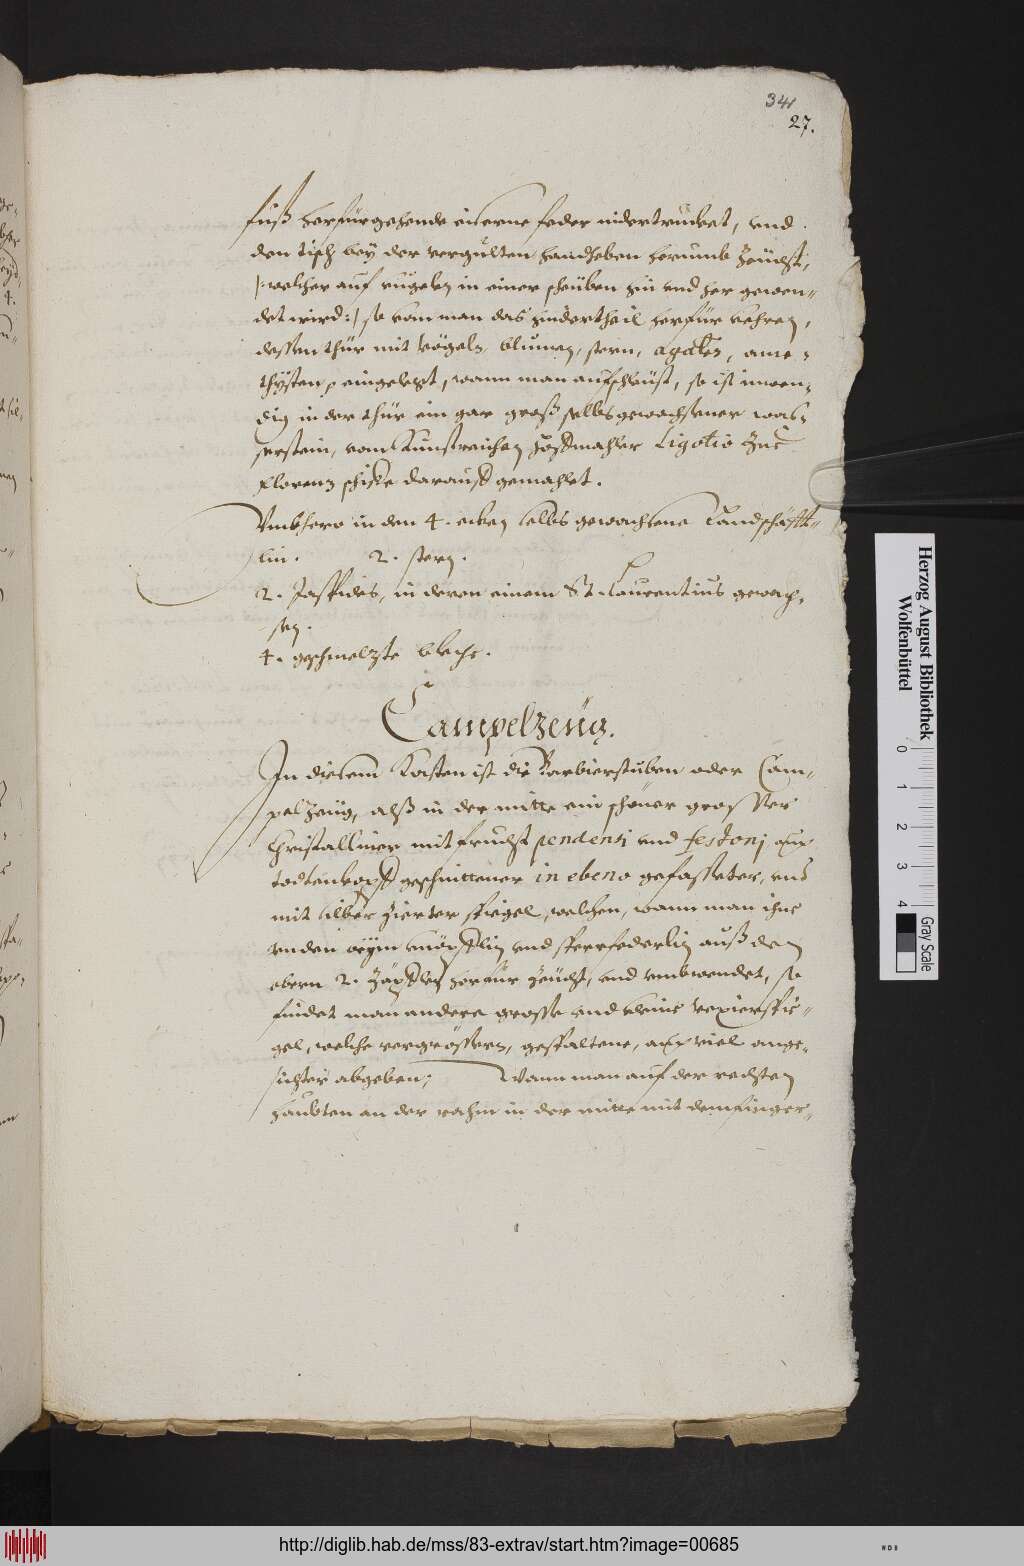 341
27.
fuß herfürgehende eiserne feder nidertrucket, vnd
den tisch bey der vergülten handheben herumb zeücht,
/: welcher auf kugelen in einer scheüben hin vnd her gewen-
det wird :/ so kan man das hindertheil herfür kehren,
dessen thür mit vögeln, blumen, stern, agaten, ame-
thysten eingelegt, wann man aufschleüst, so ist inwen-
dig in der thür ein gar groß selbs gewachsener was-
serstein, vom Kunstreichen hoffmahler Ligotio zue
Florenz schiffe darauff gemahlet.
Vmbhero in den 4. ecken selbs gewachsene Landschäfft-
lin. 2. stern.
2. Jaspides, in deren einem St. Laurentius gewach-
sen.
4. geschmelzte blech.
Campelzeüg.
In diesem Kasten ist die Barbierstuben oder Cam-
pelzeüg, alß in der mitte ein schöner grosser
Christalliner mit frucht pendenti vnd festonj auf
todtenkopff geschnittener in ebeno gefasseter, vnd
mit silber zierter spiegel, welchen, wann man ihne
vnden beym knöpfflin vnd sperrfederlin auß dem
ebern 2. zäpfflen herfür zeücht, vnd vmbwendet, so
findet man andere grosse vnd kleine Vexierspie-
gel, welche vergrössern, gespaltene, auch viel ange-
sichter abgeben; Wann man auf der rechten
haubten an der rahm in der mitte mit dem finger-
Herzog August Bibliothek
Wolfenbüttel
0 1 2 3 4
Gray Scale
http://diglib.hab.de/mss/83-extrav/start.htm?image=00685
WDB